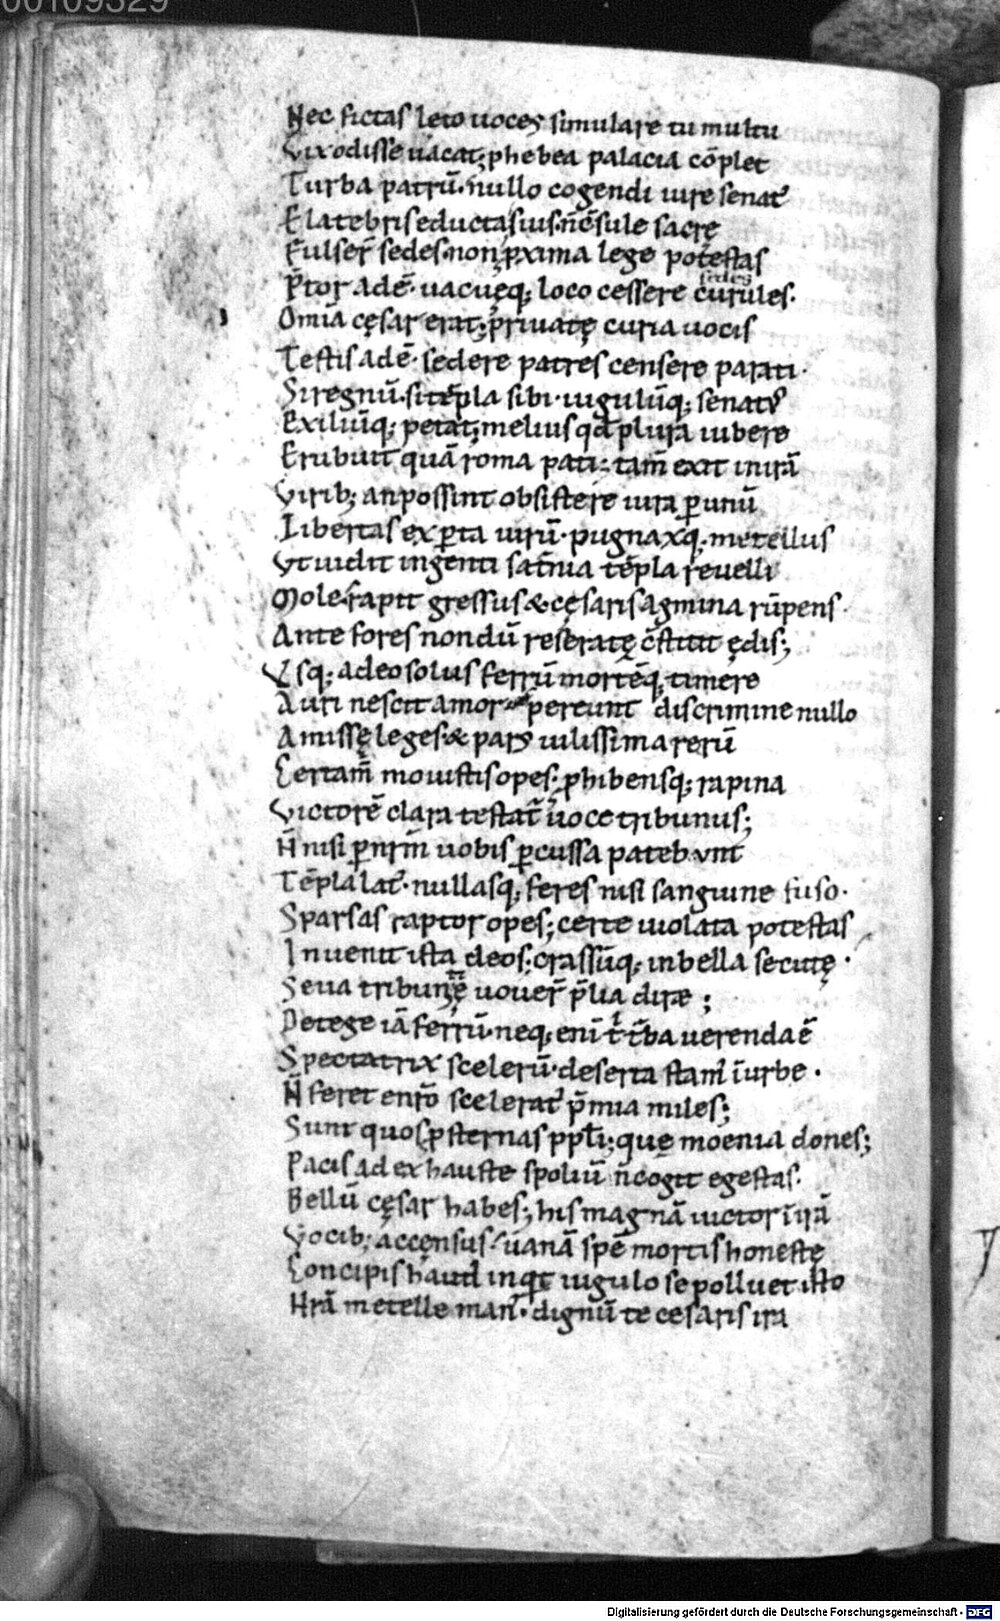 00109329
Nec fictas leto uoces simulare tumultu
Vixodisse uacat; phebea palacia cōplet
Turba patrū. nullo cogendi iure senat᷒
E latebris eductas suis. n̄ cōsule sacrę
Fulser̄ sedes. non ꝓxima lege potestas
P̄tor adē. uacuęq; loco cessere curules.
sedes
Omīa cęsar erat; priuatę curia uocis
Testis adē. sedere patres censere parati.
Si regnū. si tēpla sibi. iugulūq; senat᷒
Exiliūq; petat; melius qđ plura iubere
Erubuit quā roma pati; tam̄ exit in irā
Virib; an possint obsistere iura ꝑ unū
Libertas exꝑta uirū. pugnaxq; metellus
Vt uidit ingenti sat̄nia tēpla reuelli
Mole. rapit gressus & cęsaris agmina rūpens.
Ante fores nondū reseratę c̄stitit ędis;
Vsq; adeo solus ferrū mortēq; timere
Auri nescit amor pereunt discrimine nullo
Amissę leges. & pars uilissima rerū
Certam̄ mouistis opes. ꝓhibensq; rapina
Victorē clara testat᷒ uoce tribunus;
N̄ nisi ꝑ nr̄m uobis ꝑcussa patebunt
Tēpla lat᷒. nullasq; feres nisi sanguine fuso.
Sparsas raptor opes; certe uiolata potestas
Inuenit ista deos; crassūq; in bella secutę.
Seua tribunitię uouer̄ p̄lia dirę;
Detege iā ferrū. neq; enī t᷒ t᷒ba uerenda ē
Spectatrix scelerū. deserta stam᷒ ī urbe.
N̄ feret e nr̄o scelerat᷒ p̄mia miles;
Sunt quos ꝓsternas ppl̄i; que moenia dones;
Pacis ad exhauste spoliū n̄ cogit egestas.
Bellū cęsar habes; his magnā uictor ī irā
Vocib; accęnsus. uanā spē mortis honestę
Concipis haud inqͥt iugulo se polluet isto
Nr̄a metelle man᷒. dignū te cesaris ira
Digitalisierung gefördert durch die Deutsche Forschungsgemeinschaft - DFG